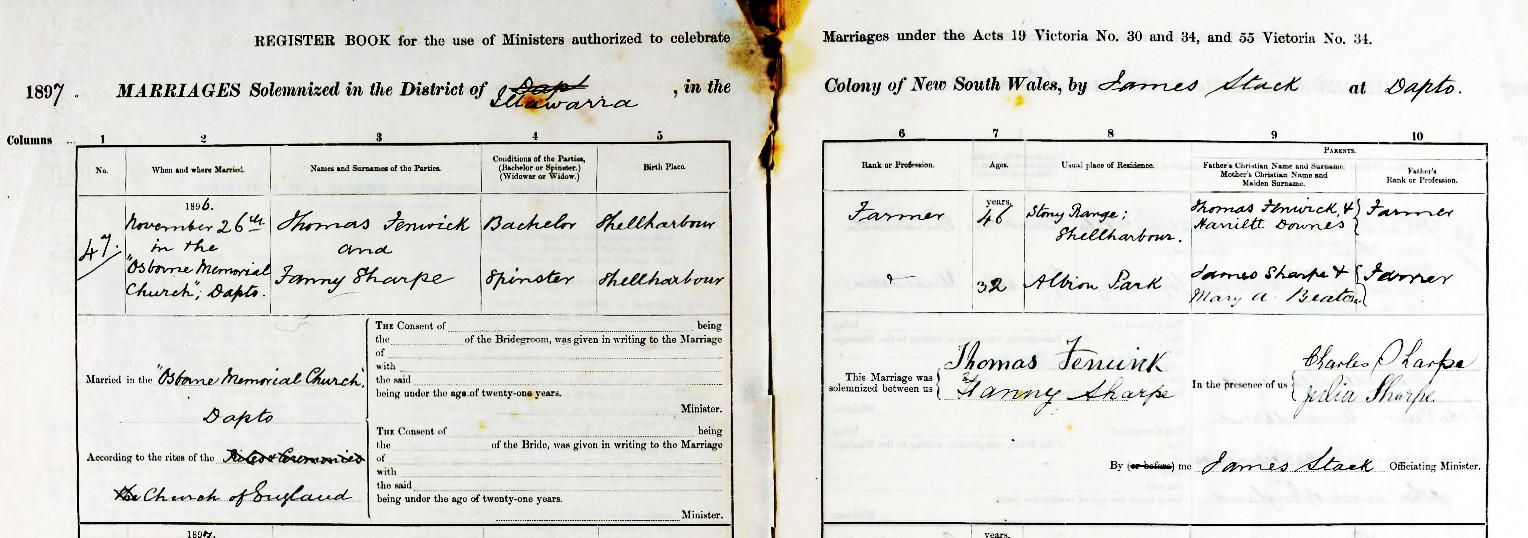 REGISTER BOOK for the use of Ministers authorized to celebrate Marriages under the Acts 19 Victoria No. 30 and 34, and 55 Victoria No. 34.
1897. MARRIAGES Solemnized in the District of Dapt Illawarra, in the Colony of New South Wales, by James Stack at Dapto.
Columns ... 1 2 3 4 5 6 7 8 9 10
No.
When and where Married.
Names and Surnames of the Parties.
Conditions of the Parties,
(Bachelor or Spinster.)
(Widower or Widow.)
Birth Place.
Rank or Profession.
Ages.
Usual place of Residence.
PARENTS.
Father's Christian Name and Surname.
Mother's Christian Name and
Maiden Surname.
Father's
Rank or Profession.
47.
1896.
November 26th
in the
"Osborne Memorial
Church", Dapto.
Thomas Fenwick
and
Fanny Sharpe
Bachelor
Spinster
Shellharbour
Shellharbour
Farmer
years.
46
32
Stony Range;
Shellharbour.
Albion Park
Thomas Fenwick, &
Harriett Downes
James Sharpe &
Mary A. Beaton
Farmer
Farmer
Married in the "Osborne Memorial Church",
Dapto
According to the rites of the Rites & Ceremonies
the Church of England
THE Consent of being
the of the Bridegroom, was given in writing to the Marriage
of
with
the said
being under the age of twenty-one years.
Minister.
THE Consent of being
the of the Bride, was given in writing to the Marriage
of
with
the said
being under the age of twenty-one years.
Minister.
This Marriage was
solemnized between us
Thomas Fenwick
Fanny Sharpe
In the presence of us
Charles Sharpe
Julia Sharpe
By (or before) me James Stack Officiating Minister.
1897.
years.